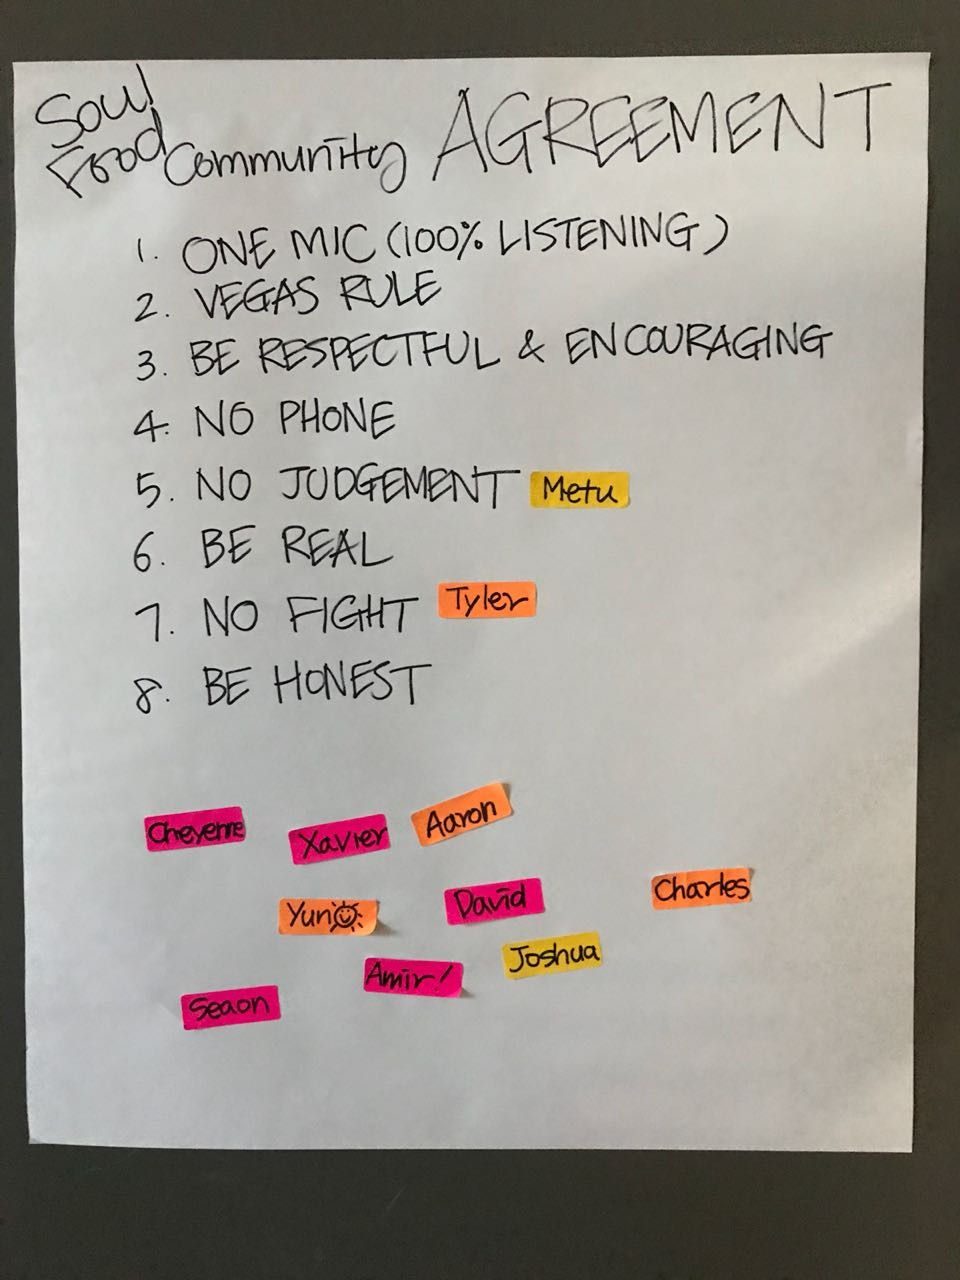 Soul
Food Community AGREEMENT
1. ONE MIC (100% LISTENING)
2. VEGAS RULE
3. BE RESPECTFUL & ENCOURAGING
4. NO PHONE
5. NO JUDGEMENT Metu
6. BE REAL
7. NO FIGHT Tyler
8. BE HONEST
Cheyenne Xavier Aaron
Yun David Charles
Amir! Joshua
Seaon